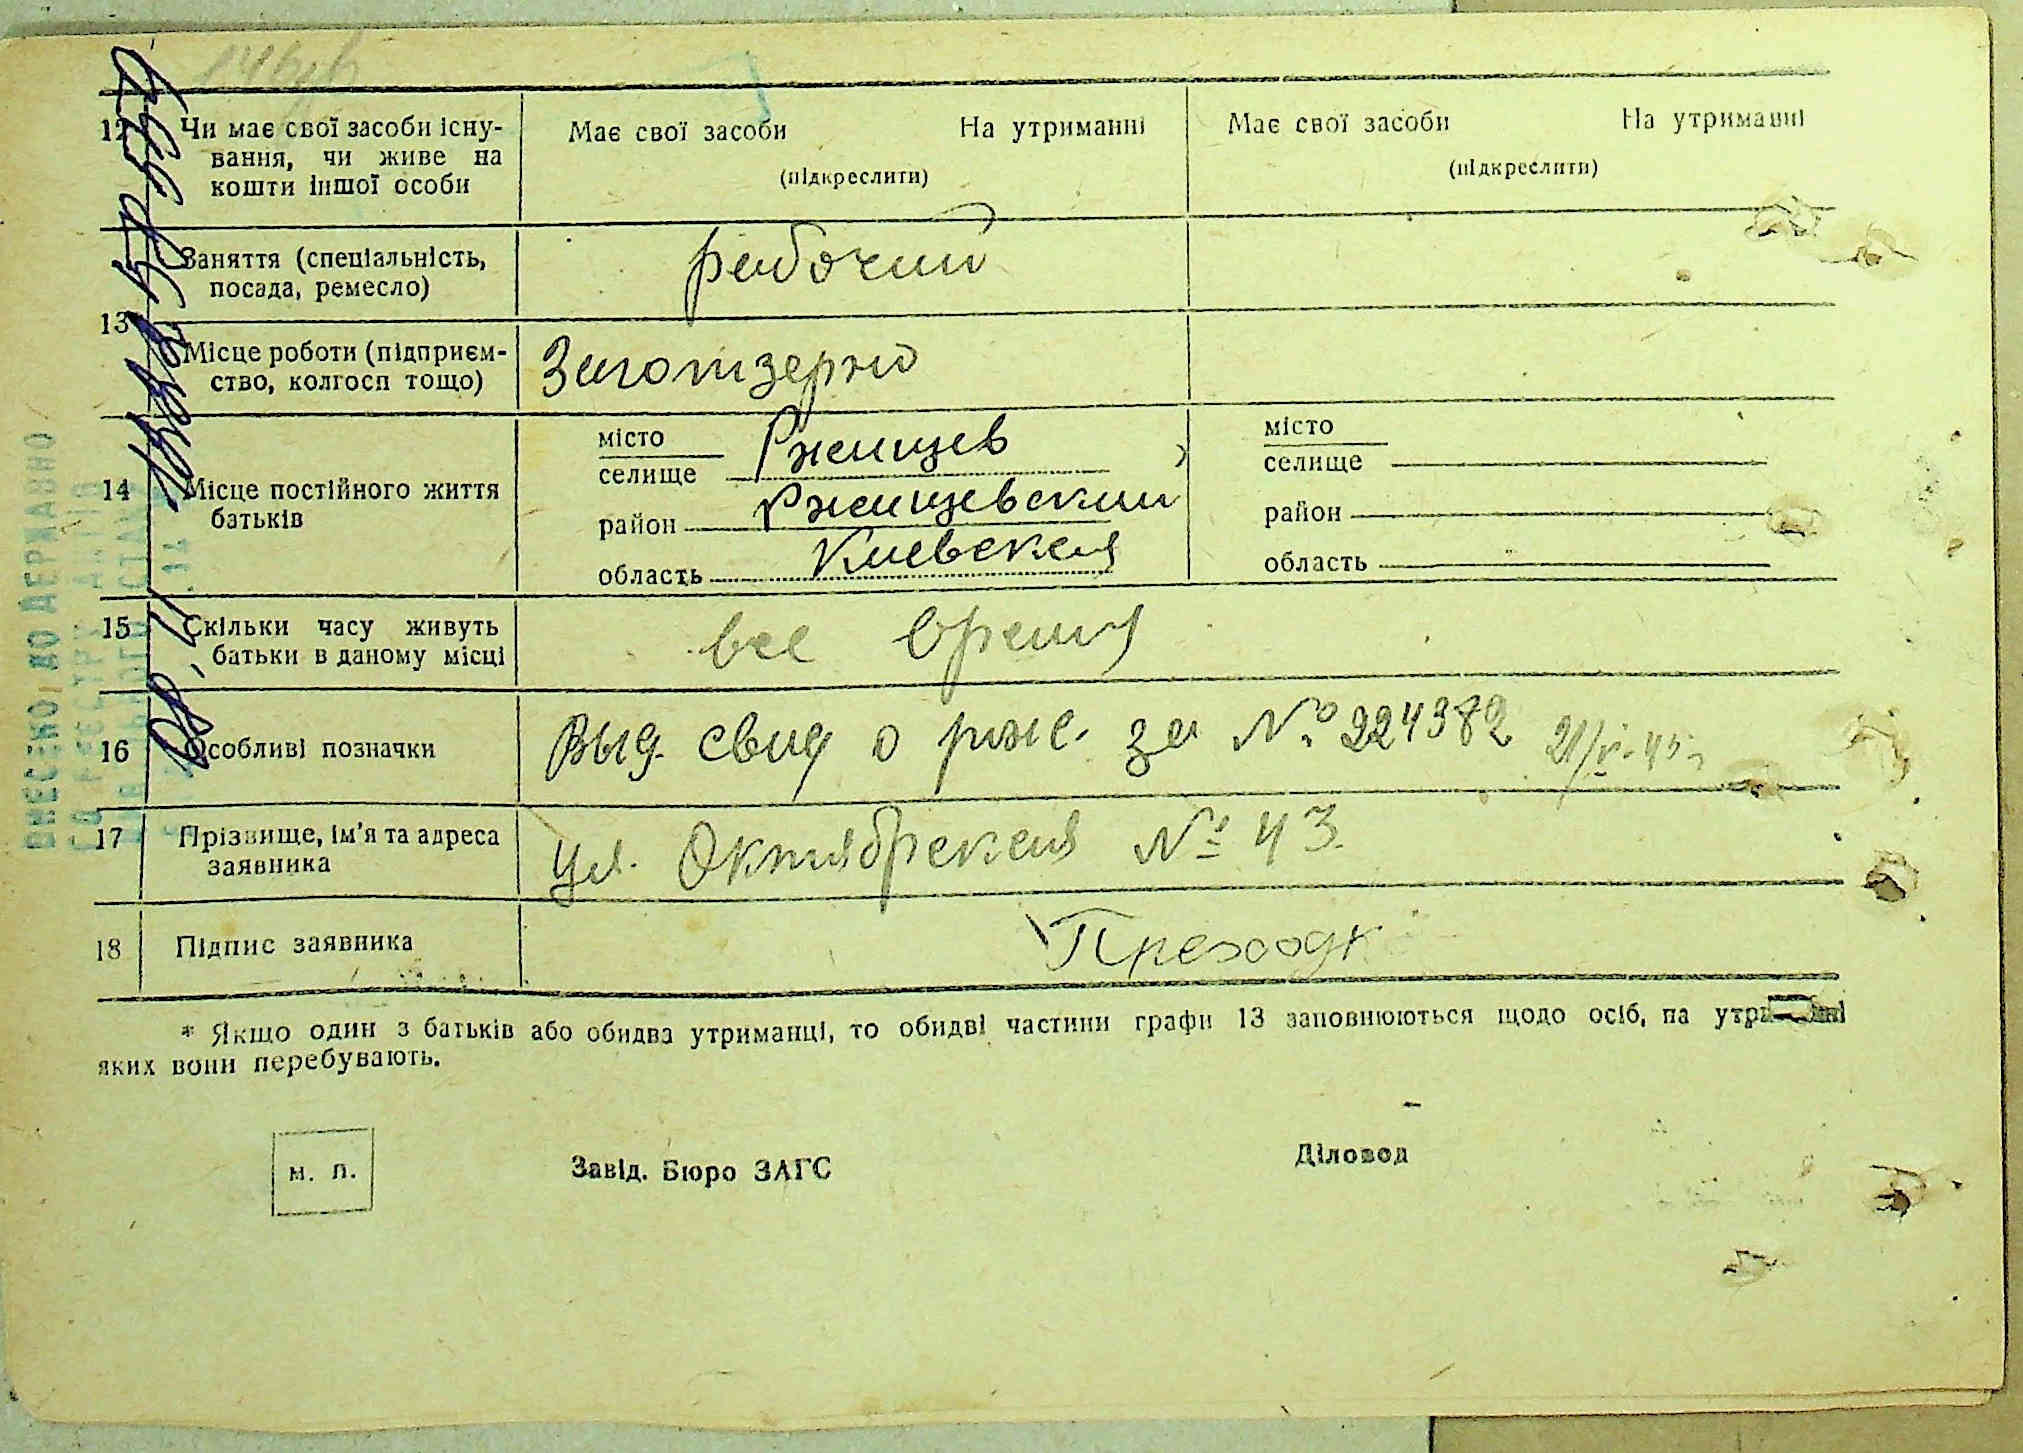 12 Чи має свої засоби існу-
вання, чи живе на
кошти іншої особи
Має свої засоби На утриманні
(підкреслити)
Має свої засоби На утриманні
(підкреслити)
13 Заняття (спеціальність,
посада, ремесло)
рабочий
Місце роботи (підприєм-
ство, колгосп тощо)
Заготзерно
14 Місце постійного життя
батьків
місто
селище Ржищев
район Ржищевский
область Киевская
місто
селище
район
область
15 Скільки часу живуть
батьки в даному місці
все время
16 Особливі позначки
Выд. свид о рже. за № 224382 21/V-45г
17 Прізвище, ім'я та адреса
заявника
ул. Октябрская № 43.
18 Підпис заявника
* Якщо один з батьків або обидва утриманці, то обидві частини графи 13 заповнюються щодо осіб, на утриманні
яких вони перебувають.
м. п.
Завід. Бюро ЗАГС
Діловод
ВНЕСЕНО ДО ДЕРЖАВНО